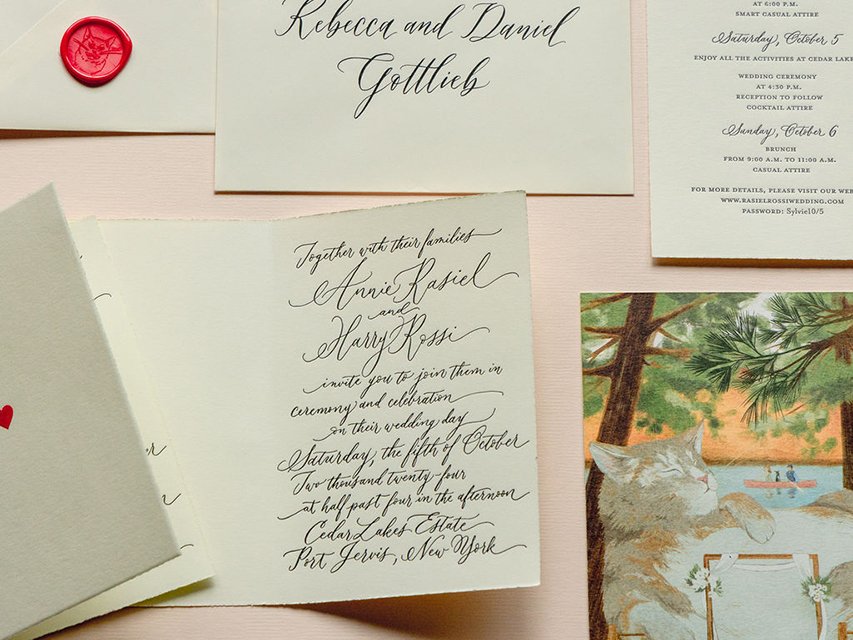 Rebecca and Daniel
Gottlieb
AT 6:00 P.M.
SMART CASUAL ATTIRE
Saturday, October 5
ENJOY ALL THE ACTIVITIES AT CEDAR LAKE
WEDDING CEREMONY
AT 4:30 P.M.
RECEPTION TO FOLLOW
COCKTAIL ATTIRE
Sunday, October 6
BRUNCH
FROM 9:00 A.M. TO 11:00 A.M.
CASUAL ATTIRE
FOR MORE DETAILS, PLEASE VISIT OUR WE
WWW.RASIELROSSIWEDDING.COM
PASSWORD: Sylvie10/5
Together with their families
Annie Rasiel
and
Harry Rossi
invite you to join them in
ceremony and celebration
on their wedding day
Saturday, the fifth of October
Two thousand twenty-four
at half past four in the afternoon
Cedar Lakes Estate
Port Jervis, New York